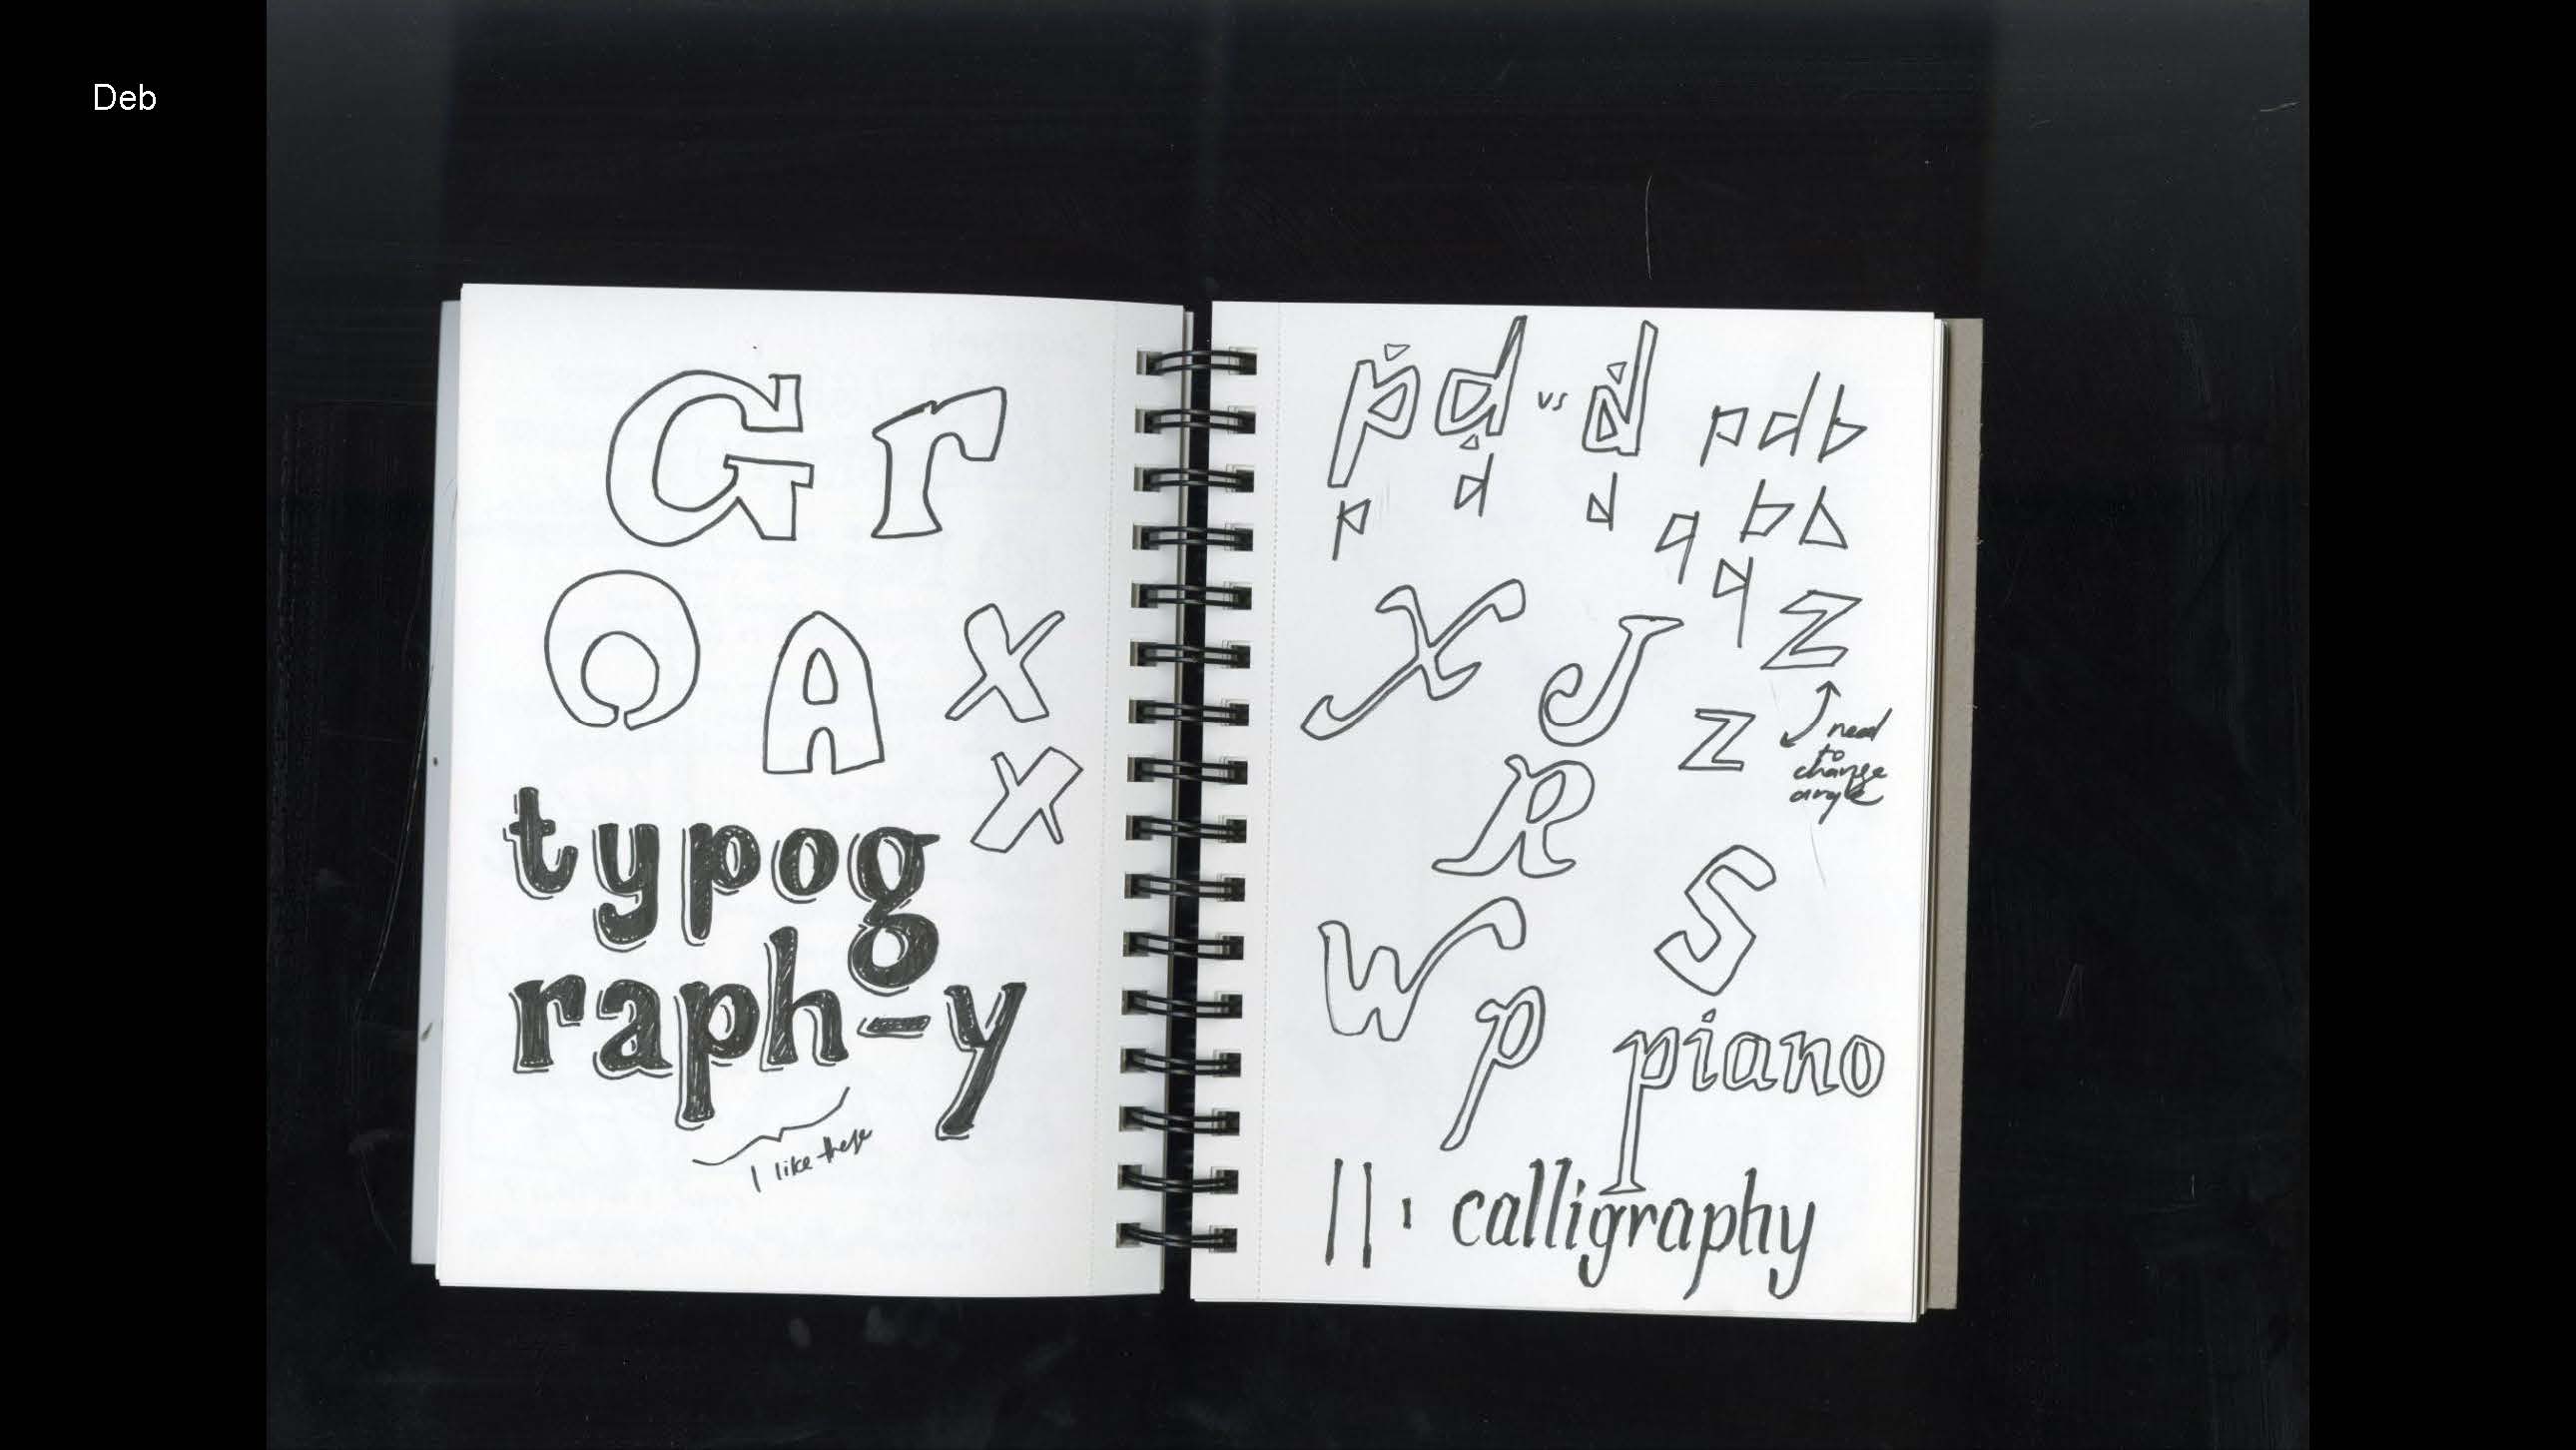 Deb
G r
O A X
X
typog
raph-y
I like these
p d vs d p d b
p d d q b b
q
X J Z
Z
need
to
change
angle
R
S
W
p
piano
calligraphy